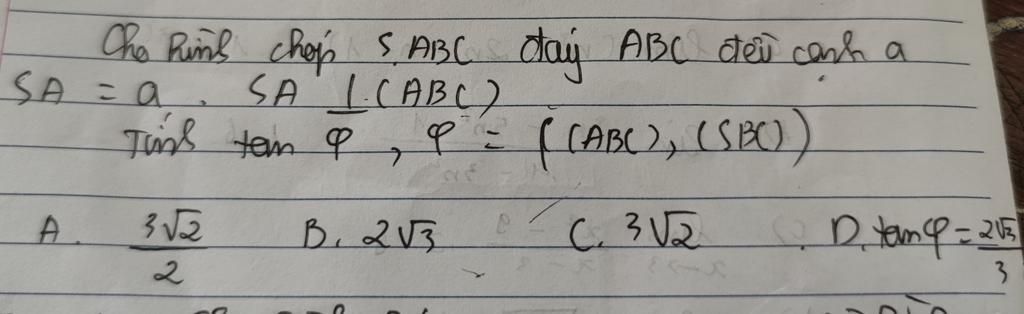 Cho hình chóp S.ABC đáy ABC đều cạnh a
SA = a. SA ⊥ (ABC)
Tính tan φ, φ = ((ABC), (SBC))
A. 3√2/2 B. 2√3 C. 3√2 D. tanφ = 2√3/3